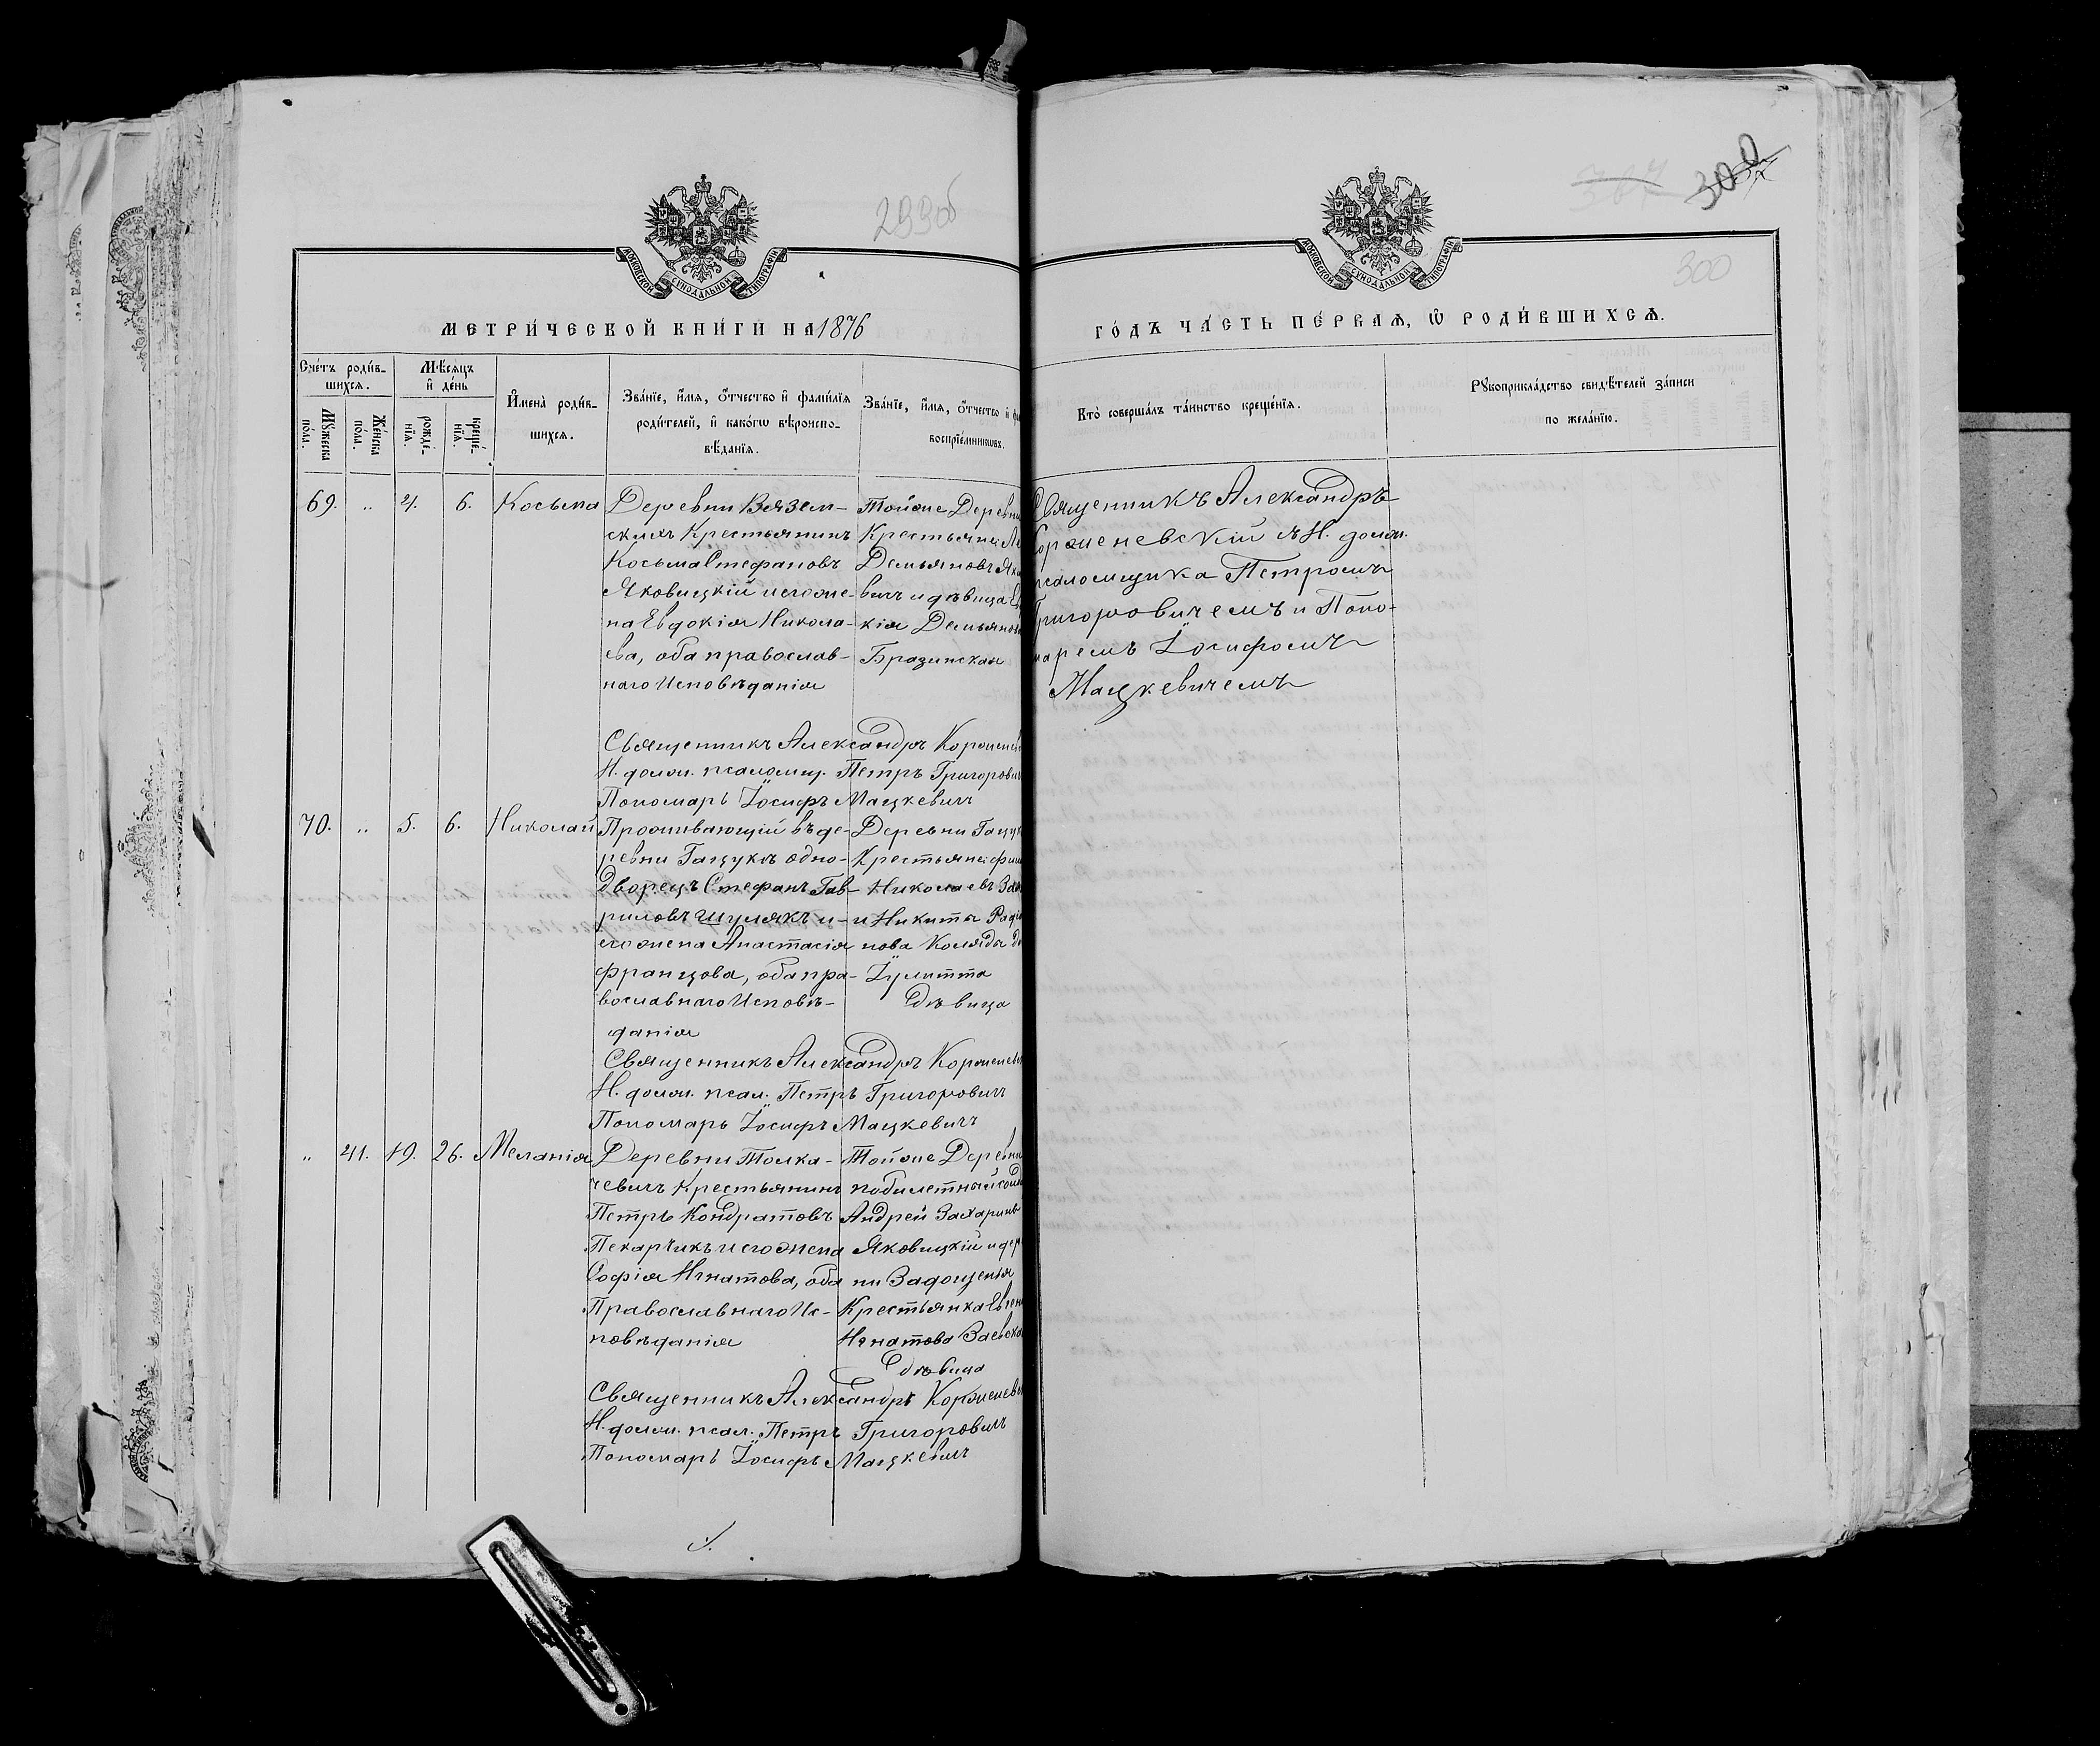 299об
300
300
МОСКОВСКОЙ СѴНОДАЛЬНОЙ ТИПОГРАФІИ
МОСКОВСКОЙ СѴНОДАЛЬНОЙ ТИПОГРАФІИ
МЕТРИ́ЧЕСКОЙ КНИ́ГИ НА 1876
ГО́ДЪ ЧА́СТЬ ПЕ́РВАЯ, Ѡ҆ РОДИ́ВШИХСЯ.
Сче́тъ роди́в-
шихся.
Мѣ́сяцъ
и҆ де́нь
Мꙋ́жеска по́ла.
Же́нска по́ла.
рожде́-
нїя.
креще́-
нїя.
И҆мена̀ роди́в-
шихся.
Зва́нїе, и҆́мя, ѻ҆́тчество и҆ фами́лїя
роди́телей, и҆ како́гѡ вѣроиспо-
вѣ́данїя.
Зва́нїе, и҆́мя, ѻ҆́тчество и҆
воспрїе́мникѡвъ.
Кто̀ соверша́лъ та́инство креще́нїя.
Рꙋкоприкла́дство свидѣ́телей за́писи
по жела́нїю.
69. „ 4. 6. Косьма
Деревни Вязем-
скихъ Крестьянинъ
Косьма Стефановъ
Яковицкій и его же-
на Евдокія Никола-
ева, оба православ-
наго Исповѣданія
Тойже Деревни
Крестьяне
Демьяновъ
вичъ и дѣвица
кія Демьянова
Бразинская
Священникъ Александръ
Корженевскій съ И. долж.
псаломщика Петромъ
Григоровичемъ и Поно-
маремъ Іосифомъ
Мацкевичемъ
Священникъ Александръ Корженев
И. долж. псаломщ. Петръ Григорович
Пономарь Іосифъ Мацкевичъ
70. „ 5. 6. Николай
Проживающій въ де-
ревни Гацукѣ одно-
дворецъ Стефанъ Гав-
риловъ Шулякъ и
его жена Анастасія
Францова, оба пра-
вославнаго Исповѣ-
данія
Деревни Гацук
Крестьяне
Николаевъ
и Никиты Радіо
нова Коляды
Іулитта
дѣвица
Священникъ Александръ Корженев
И. долж. псал. Петръ Григоровичъ
Пономарь Іосифъ Мацкевичъ
„ 41. 19. 26. Меланія
Деревни Толка-
чевичъ Крестьянинъ
Петръ Кондратовъ
Пекарчикъ и его жена
Софія Игнатова, оба
Православнаго Ис-
повѣданія
Тойже Деревни
побилетный
Андрей Захаринъ
Яковицкій и дер
ни Задощенья
Крестьянка Евген
Игнатова
дѣвица
Священникъ Александръ Корженев
И. долж. псал. Петръ Григоровичъ
Пономарь Іосифъ Мацкевичъ